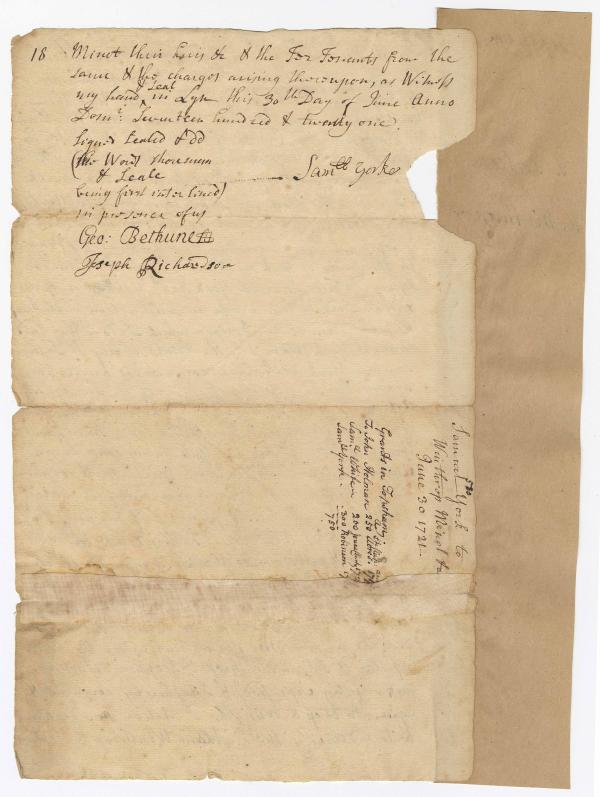 18 Minot their heirs &c & the Ter Tenants from the
same & the charges arising thereupon, as Witness
my hand & Seal in Lyn this 30th Day of June Anno
Domi: Seventeen hundred & twenty one.
Signed Sealed & dd
(the Word thousaun
& Seale
being first interlined)
in presence of us
Samll Yorke
Geo: Bethune
Joseph Richardson
Samuel York to
Winthrop Minot &a
June 30 1721.
580
Grants in Topsham,
To John Holman 250
Saml Whitten 200
Saml York. 300 Robinson
750